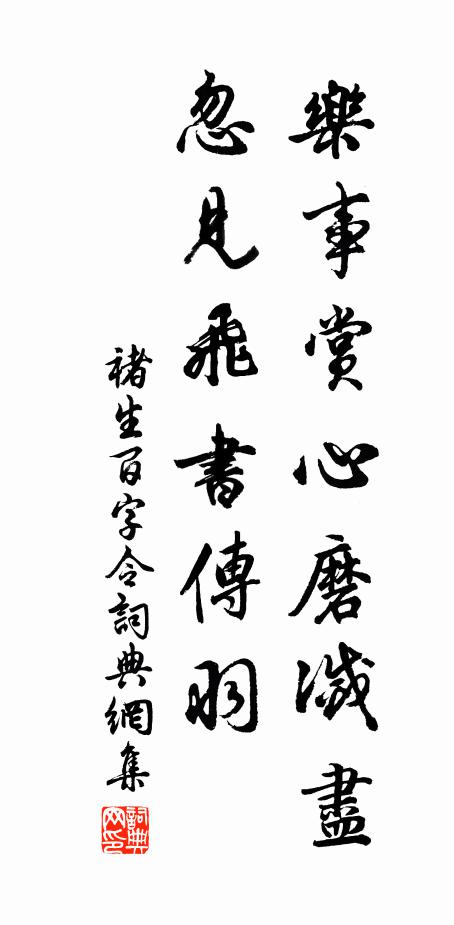 樂事賞心磨滅盡
忽見飛書傳羽
褚生百字令詞典網集
詞典网印